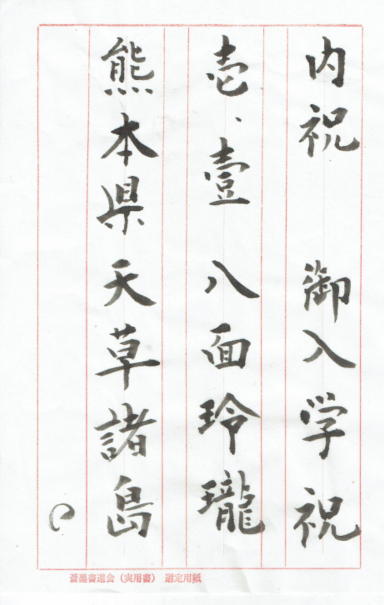 内祝 御入学祝
壱、壹 八面玲瓏
熊本県天草諸島
書道会(実用書) 選定用紙